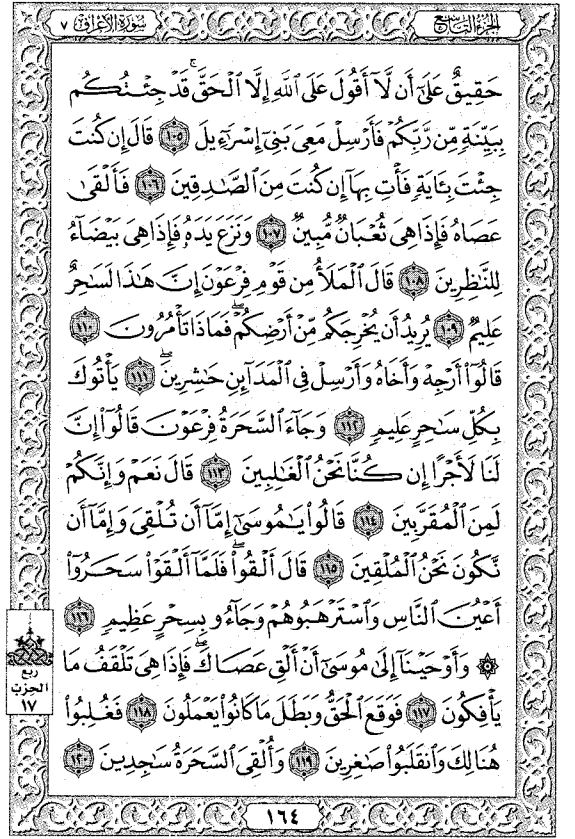 سُورَةُ الأَعْرَافِ ٧
الجزء التاسع
حَقِيقٌ عَلَىٰٓ أَن لَّآ أَقُولَ عَلَى ٱللَّهِ إِلَّا ٱلْحَقَّ ۚ قَدْ جِئْتُكُم
بِبَيِّنَةٍ مِّن رَّبِّكُمْ فَأَرْسِلْ مَعِىَ بَنِىٓ إِسْرَٰٓءِيلَ ١٠٥ قَالَ إِن كُنتَ
جِئْتَ بِـَٔايَةٍ فَأْتِ بِهَآ إِن كُنتَ مِنَ ٱلصَّـٰدِقِينَ ١٠٦ فَأَلْقَىٰ
عَصَاهُ فَإِذَا هِىَ ثُعْبَانٌ مُّبِينٌ ١٠٧ وَنَزَعَ يَدَهُۥ فَإِذَا هِىَ بَيْضَآءُ
لِلنَّـٰظِرِينَ ١٠٨ قَالَ ٱلْمَلَأُ مِن قَوْمِ فِرْعَوْنَ إِنَّ هَـٰذَا لَسَـٰحِرٌ
عَلِيمٌ ١٠٩ يُرِيدُ أَن يُخْرِجَكُم مِّنْ أَرْضِكُمْ ۖ فَمَاذَا تَأْمُرُونَ ١١٠
قَالُوٓا۟ أَرْجِهْ وَأَخَاهُ وَأَرْسِلْ فِى ٱلْمَدَآئِنِ حَـٰشِرِينَ ۖ ١١١ يَأْتُوكَ
بِكُلِّ سَـٰحِرٍ عَلِيمٍ ١١٢ وَجَآءَ ٱلسَّحَرَةُ فِرْعَوْنَ قَالُوٓا۟ إِنَّ
لَنَا لَأَجْرًا إِن كُنَّا نَحْنُ ٱلْغَـٰلِبِينَ ١١٣ قَالَ نَعَمْ وَإِنَّكُمْ
لَمِنَ ٱلْمُقَرَّبِينَ ١١٤ قَالُوا۟ يَـٰمُوسَىٰٓ إِمَّآ أَن تُلْقِىَ وَإِمَّآ أَن
نَّكُونَ نَحْنُ ٱلْمُلْقِينَ ١١٥ قَالَ أَلْقُوا۟ ۖ فَلَمَّآ أَلْقَوْا۟ سَحَرُوٓا۟
أَعْيُنَ ٱلنَّاسِ وَٱسْتَرْهَبُوهُمْ وَجَآءُو بِسِحْرٍ عَظِيمٍ ١١٦
۞ وَأَوْحَيْنَآ إِلَىٰ مُوسَىٰٓ أَنْ أَلْقِ عَصَاكَ ۖ فَإِذَا هِىَ تَلْقَفُ مَا
يَأْفِكُونَ ١١٧ فَوَقَعَ ٱلْحَقُّ وَبَطَلَ مَا كَانُوا۟ يَعْمَلُونَ ١١٨ فَغُلِبُوا۟
هُنَالِكَ وَٱنقَلَبُوا۟ صَـٰغِرِينَ ١١٩ وَأُلْقِىَ ٱلسَّحَرَةُ سَـٰجِدِينَ ١٢٠
ربع
الحزب
١٧
١٦٤